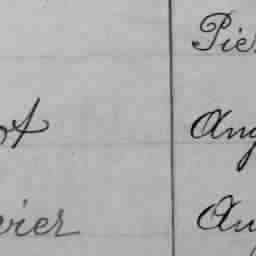 Pier
ot Aug
vier Au